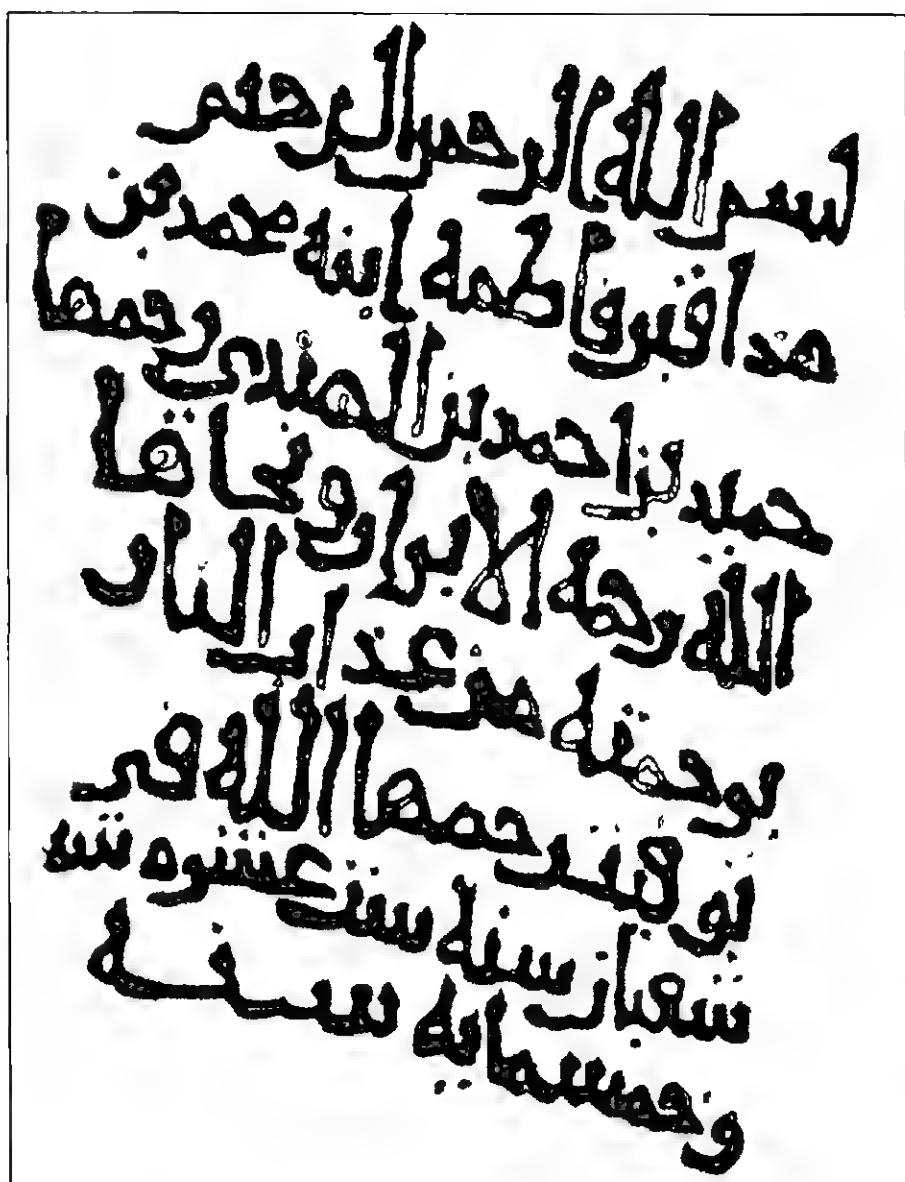 بسم الله الرحمن الرحيم
هذا قبر فاطمة ابنة محمد بن
حمد بن احمد بن الهندي رحمها
الله رحمة الابرار ونجاها
برحمته من عذاب النار
توفيت رحمها الله في
شعبان سنة ست عشره
وخمسماية